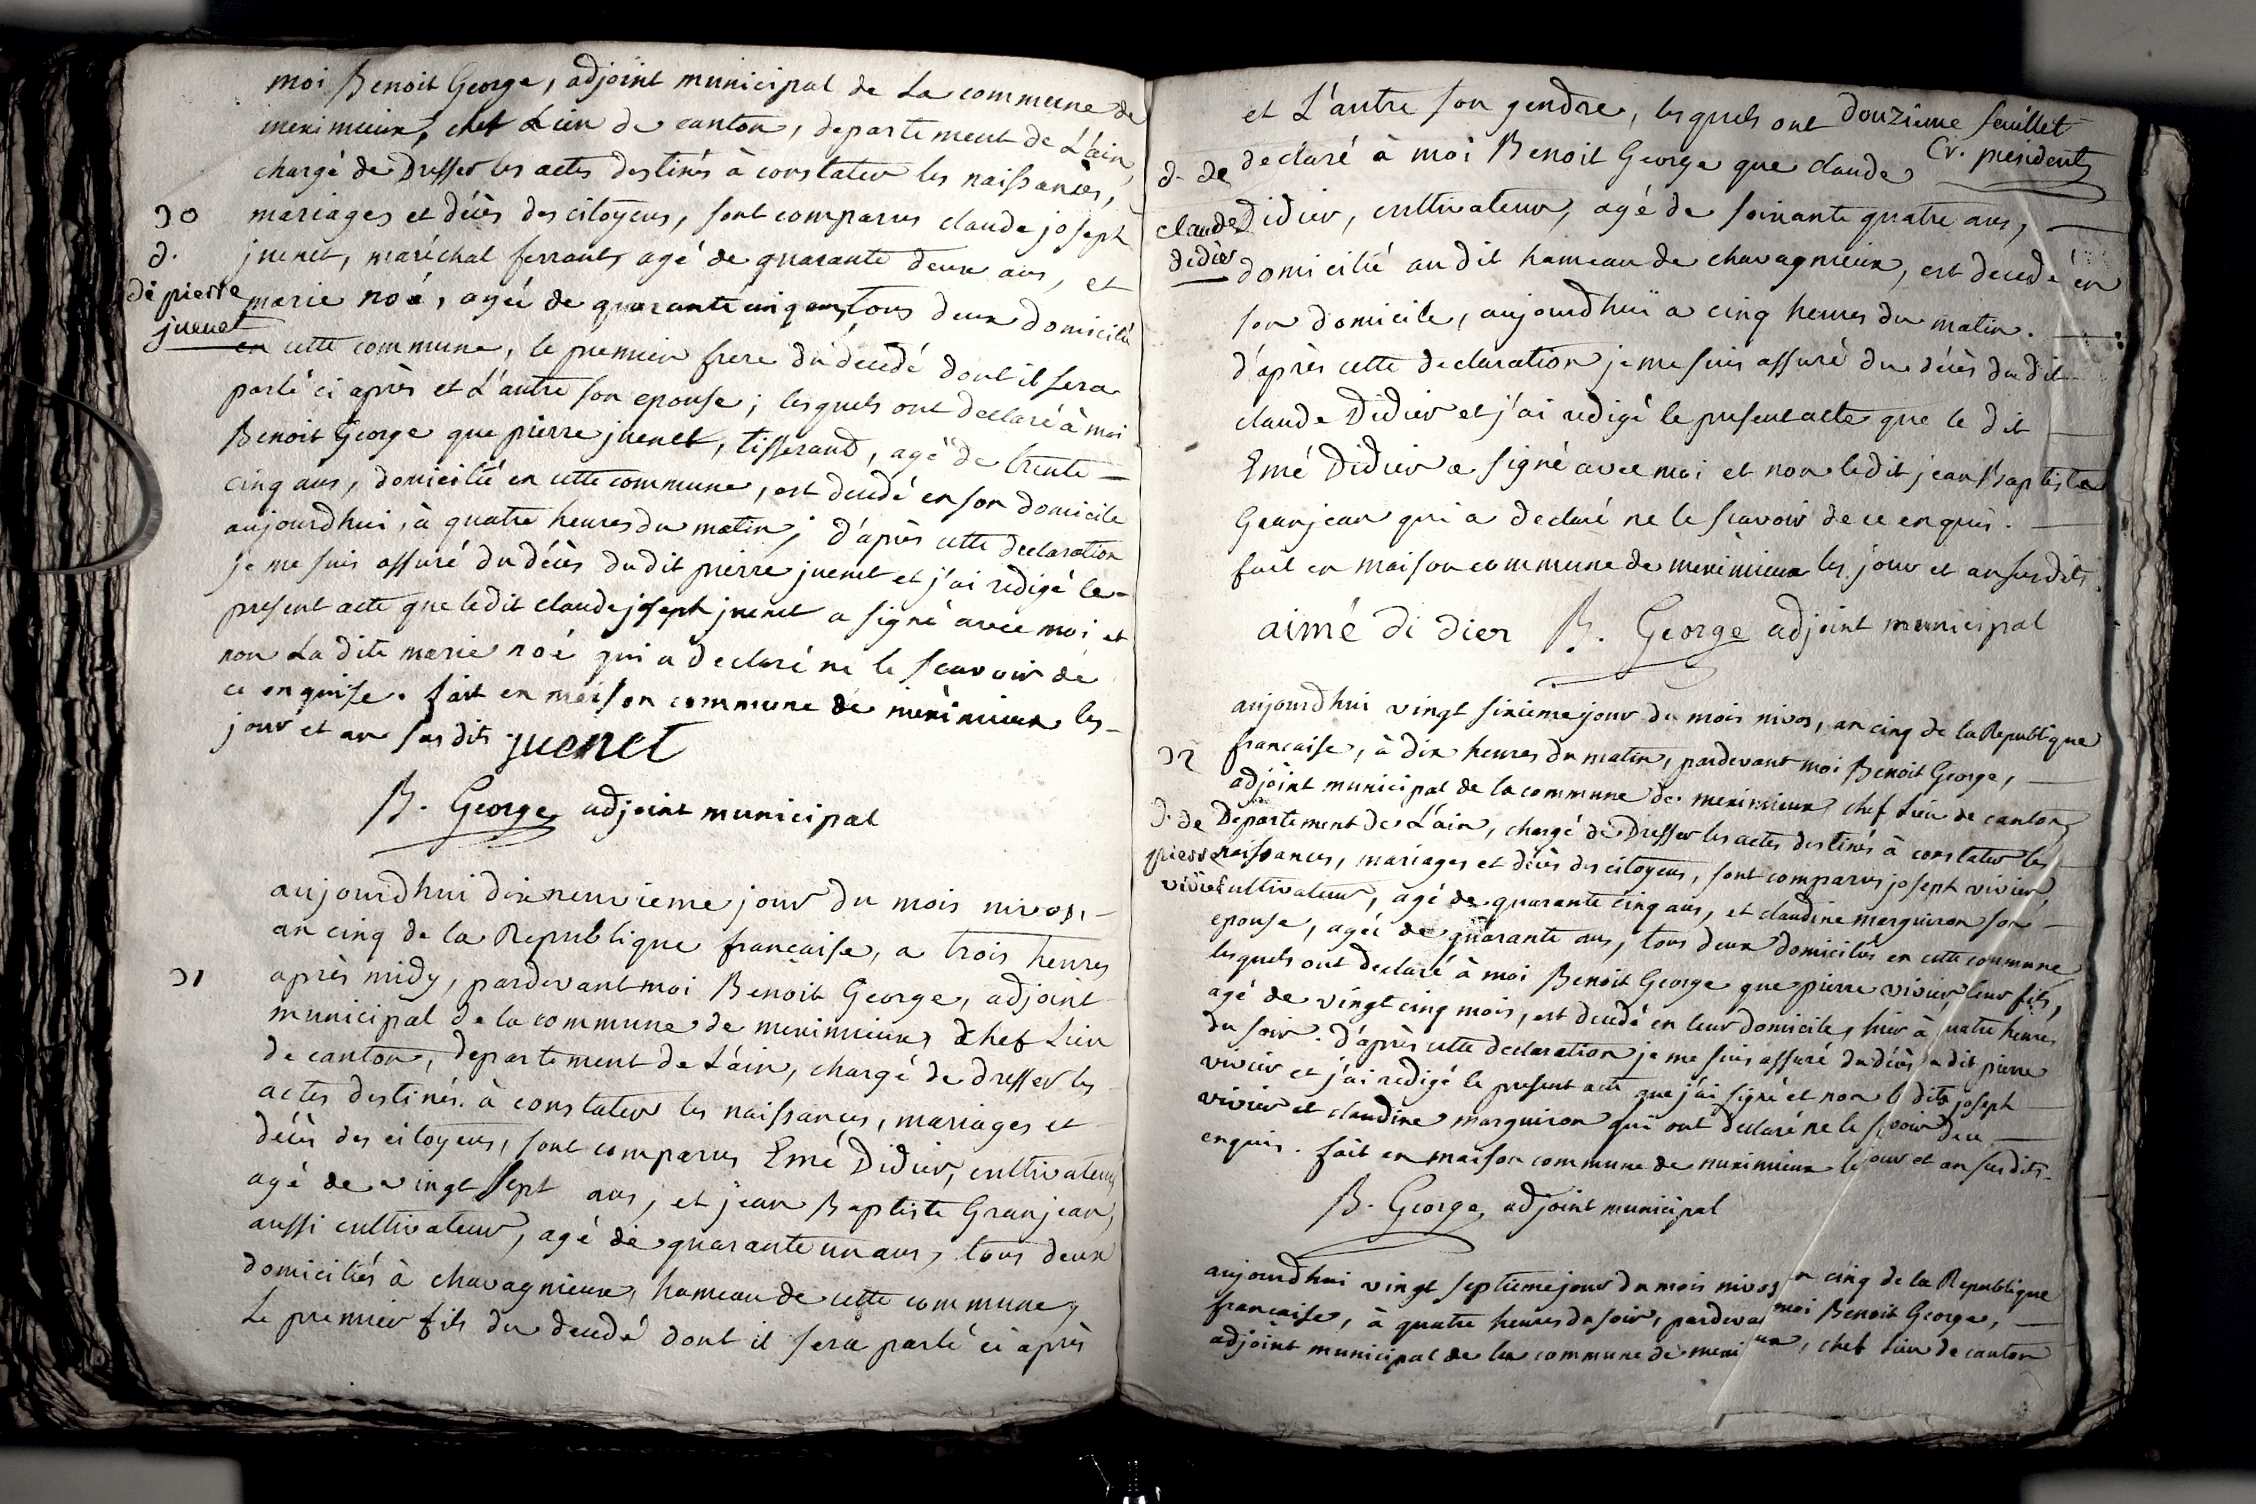 moi Benoit George, adjoint municipal de La commune de
meximieux, chef Lieu de canton, departement de L'ain,
chargé de Dresser les actes destinés à constater les naissances,
30 mariages et décès des citoyens, sont comparus claude joseph
d. juenet, maréchal ferrant, agé de quarante deux ans, et
de pierre marie noé, agée de quarante cinq ans, tous deux domiciliés
juenet en cette commune, le premier frere du decedé dont il sera
parlé ci après et L'autre son epouse; lesquels ont declaré à moi
Benoit George que pierre juenet, tisserand, agé de trente
cinq ans, domicilié en cette commune, est decedé en son domicile
aujourdhui, à quatre heures du matin; d'après cette declaration
je me suis assuré du décès dudit pierre juenet et j'ai redigé le
present acte que ledit claude joseph juenet a signé avec moi et
non La dite marie noé qui a declaré ne le scavoir de
ce enquise. fait en maison commune de meximieux les
jour et an susdits. juenet
B. George, adjoint municipal
aujourdhui dixneuvieme jour du mois nivos,
an cinq de la Republique francaise, a trois heures
31 après midy, pardevant moi Benoit George, adjoint
municipal de la commune de meximieux chef Lieu
de canton, departement de L'ain, chargé de dresser les
actes destinés à constater les naissances, mariages et
décès des citoyens, sont comparus Emé Didier, cultivateur,
agé de vingt sept ans, et jean Baptiste Granjean,
aussi cultivateur, agé de quarante un ans, tous deux
domiciliés à chavagnieux, hameau de cette commune,
Le premier fils du decedé dont il sera parlé ci après
et L'autre son gendre, lesquels ont douzieme feuillet
d. de declaré à moi Benoit George que claude Cr. president
claude Didier, cultivateur, agé de soixante quatre ans,
didier domicilié au dit hameau de chavagnieux, est decedé en
son domicile, aujourdhui a cinq heures du matin.
d'après cette declaration je me suis assuré du décès du dit
claude Didier et j'ai redigé le present acte que le dit
Emé Didier a signé avec moi et non ledit jean Baptiste
Granjean qui a declaré ne le scavoir de ce enquis.
fait en maison commune de meximieux les jour et an susdits.
aimé di dier B. George adjoint municipal
aujourdhui vingt sixieme jour du mois nivos, an cinq de la Republique
32 francaise, à dix heures du matin, pardevant moi Benoit George,
adjoint municipal de la commune de meximieux chef Lieu de canton,
d. de Departement de L'ain, chargé de Dresser les actes destinés à constater les
pierre naissances, mariages et décès des citoyens, sont comparus joseph vivier,
vivier cultivateur, agé de quarante cinq ans, et claudine marguiron son
epouse, agée de quarante ans, tous deux domiciliés en cette commune
lesquels ont declaré à moi Benoit George que pierre vivier, leur fils,
agé de vingt cinq mois, est decedé en leur domicile, hier à uatre heures
du soir. d'après cette declaration je me suis assuré du décès u dit pierre
vivier et j'ai redigé le present acte que j'ai signé et non l dits joseph
vivier et claudine marguiron qui ont declaré ne le s voir de ce
enquis. fait en maison commune de meximieux le jour et an susdits.
B. George, adjoint municipal
aujourdhui vingt septieme jour du mois nivos n cinq de la Republique
francaise, à quatre heures du soir, pardeva moi Benoit George,
adjoint municipal de la commune de mexi ux, chef Lieu de canton